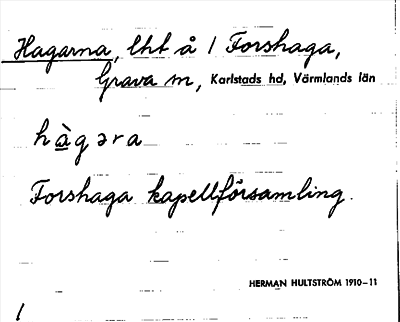 Hagarna, lht å / Forshaga,
Grava sn, Karlstads hd, Värmlands län
hàgəra
Forshaga kapellförsamling.
HERMAN HULTSTRÖM 1910–11
/